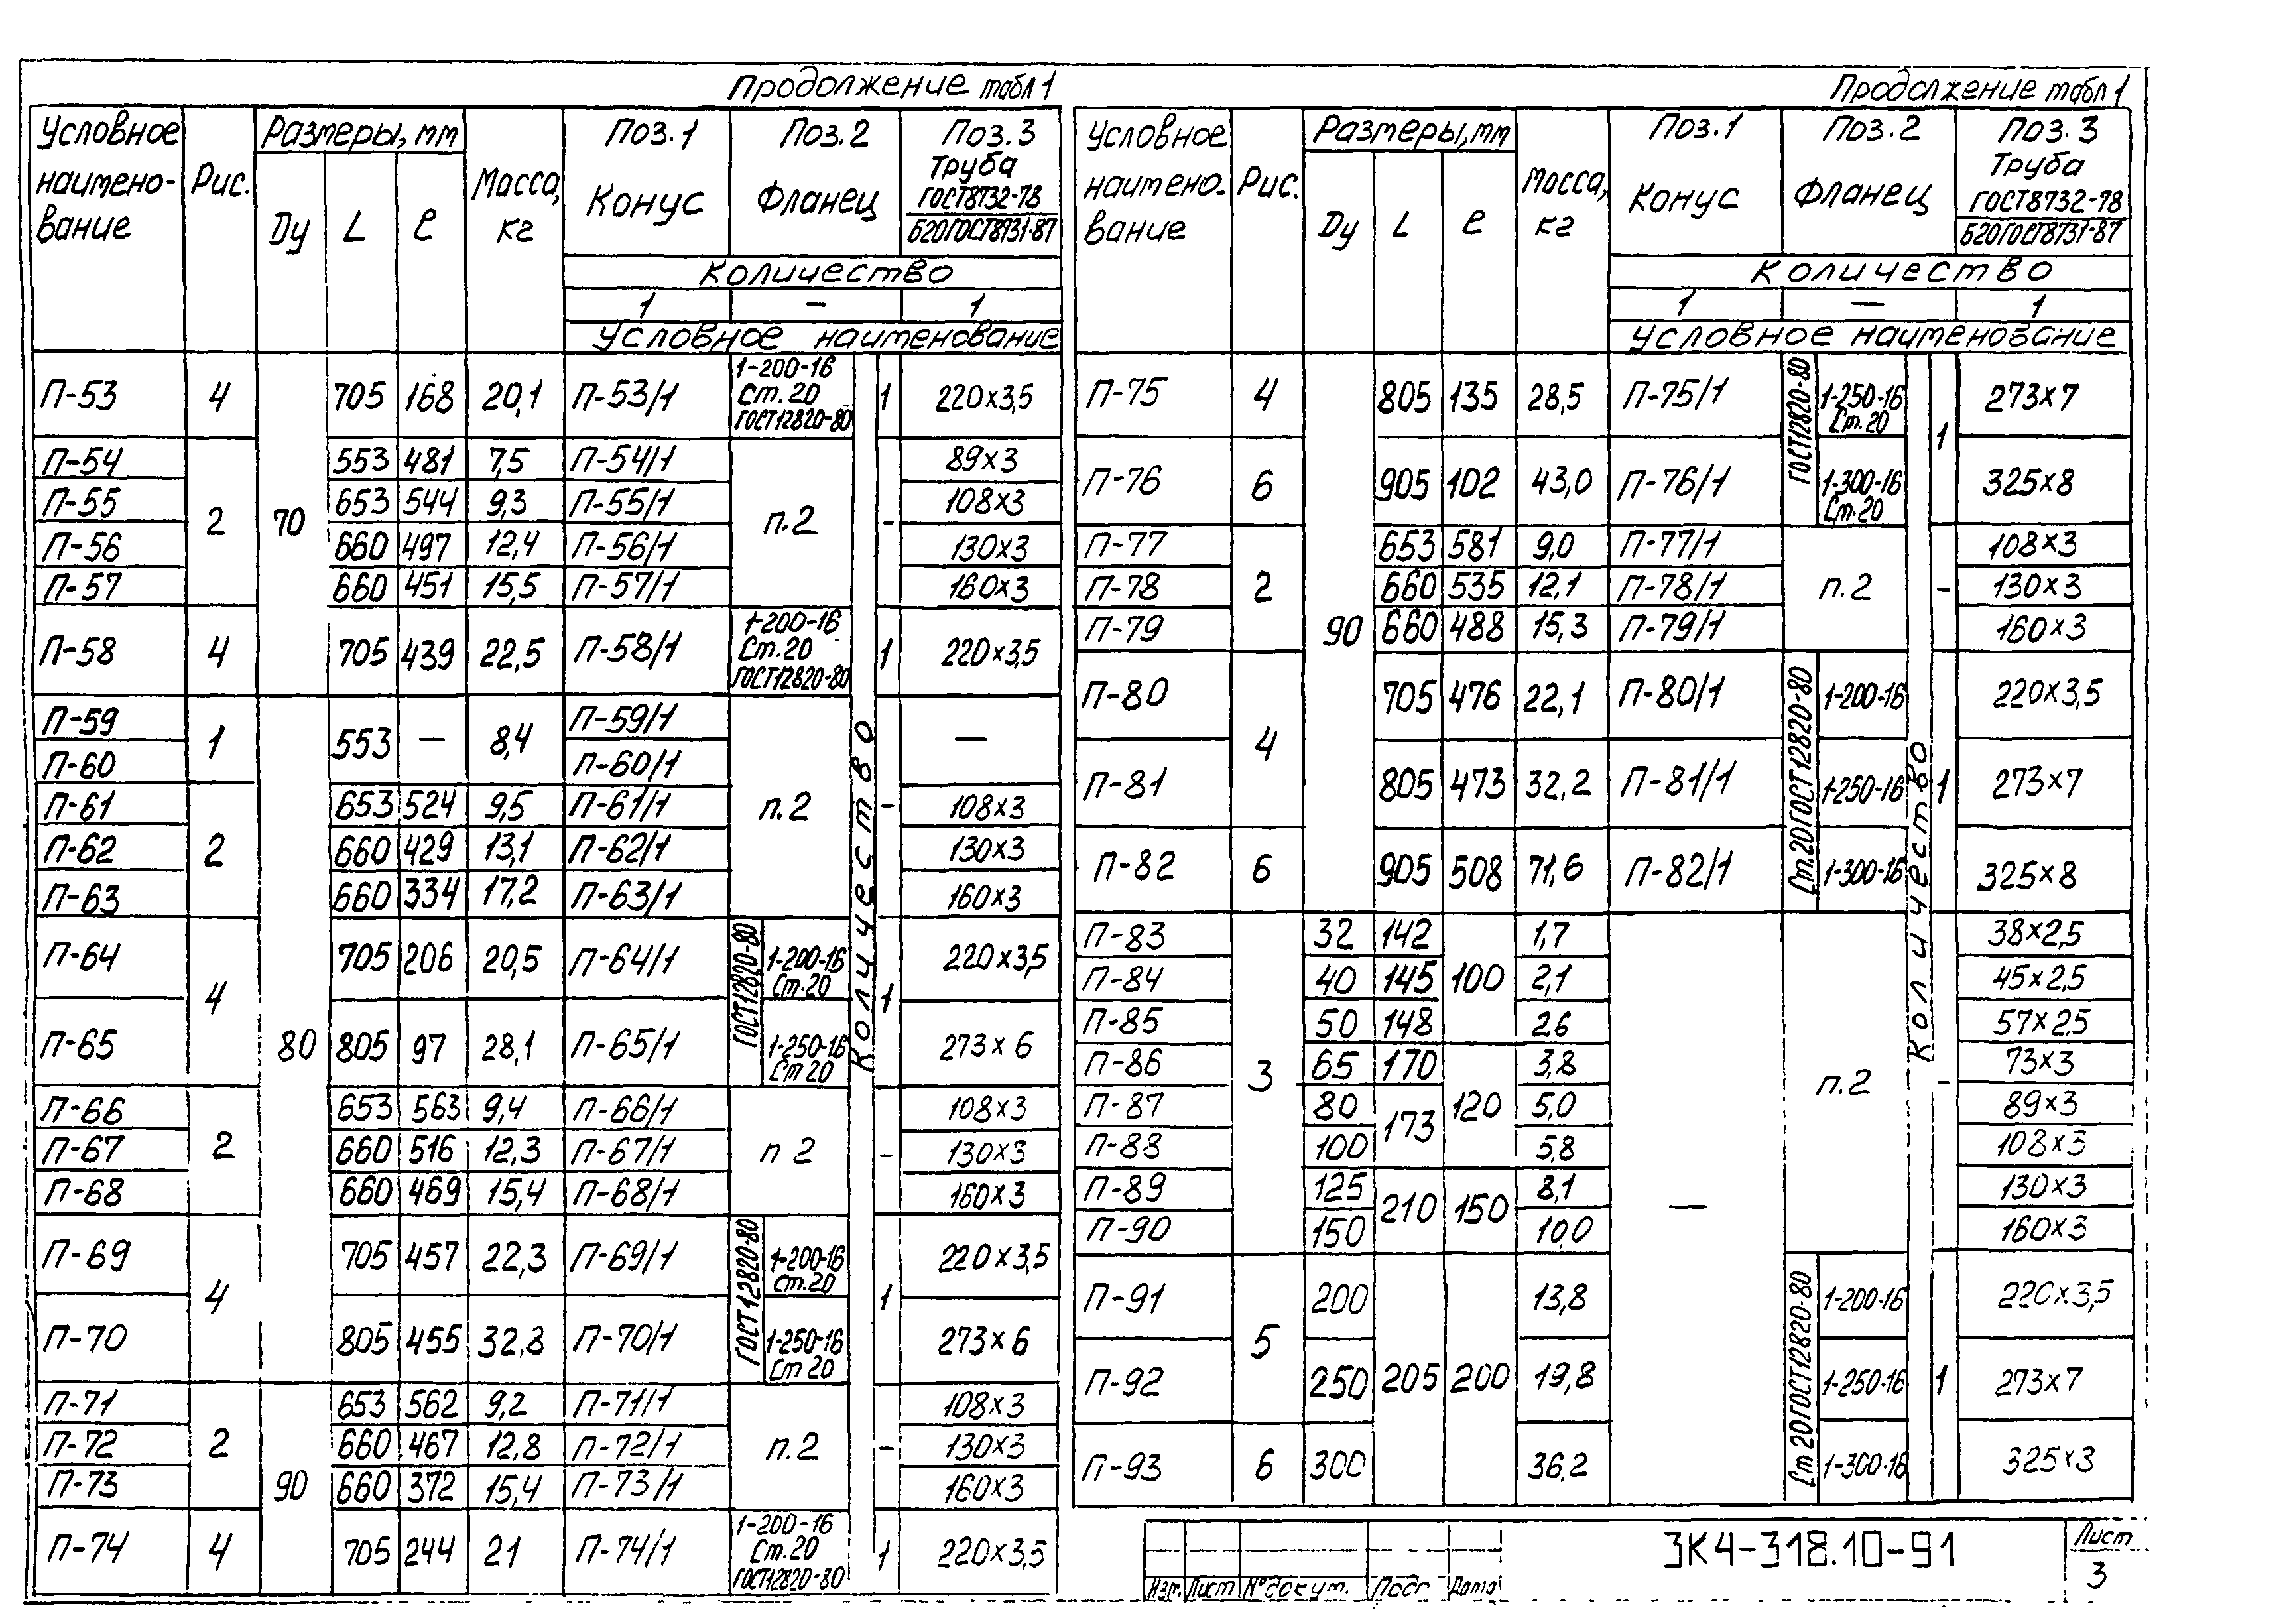 Продолжение табл 1
Условное наимено-вание Рис. Размеры, мм Масса, кг Поз.1 Конус Поз.2 Фланец Поз.3 Труба ГОСТ8732-78 Б20ГОСТ8731-87
Dу L ℓ
Количество
1 — 1
Условное наименование
П-53 4 705 168 20,1 П-53/1 1-200-16 Ст.20 ГОСТ12820-80 1 220×3,5
П-54 2 70 553 481 7,5 П-54/1 п.2 - 89×3
П-55 653 544 9,3 П-55/1 108×3
П-56 660 497 12,4 П-56/1 130×3
П-57 660 451 15,5 П-57/1 160×3
П-58 4 705 439 22,5 П-58/1 1-200-16 Ст.20 ГОСТ12820-80 1 220×3,5
П-59 1 553 — 8,4 П-59/1 —
П-60 П-60/1
П-61 2 653 524 9,5 П-61/1 п.2 - 108×3
П-62 660 429 13,1 П-62/1 130×3
П-63 660 334 17,2 П-63/1 160×3
Количество
П-64 4 705 206 20,5 П-64/1 ГОСТ12820-80 1-200-16 Ст.20 1 220×3,5
П-65 80 805 97 28,1 П-65/1 1-250-16 Ст 20 273×6
П-66 2 653 563 9,4 П-66/1 п 2 - 108×3
П-67 660 516 12,3 П-67/1 130×3
П-68 660 469 15,4 П-68/1 160×3
П-69 4 705 457 22,3 П-69/1 ГОСТ12820-80 1-200-16 Ст.20 1 220×3,5
П-70 805 455 32,8 П-70/1 1-250-16 Ст 20 273×6
П-71 2 90 653 562 9,2 П-71/1 п.2 - 108×3
П-72 660 467 12,8 П-72/1 130×3
П-73 660 372 15,4 П-73/1 160×3
П-74 4 705 244 21 П-74/1 1-200-16 Ст.20 ГОСТ12820-80 1 220×3,5
Продолжение табл 1
Условное наимено-вание Рис. Размеры, мм Масса, кг Поз.1 Конус Поз.2 Фланец Поз.3 Труба ГОСТ8732-78 Б20ГОСТ8731-87
Dу L ℓ
Количество
1 — 1
Условное наименование
П-75 4 805 135 28,5 П-75/1 ГОСТ12820-80 1-250-16 Ст.20 1 273×7
П-76 6 905 102 43,0 П-76/1 1-300-16 Ст.20 325×8
П-77 2 653 581 9,0 П-77/1 п.2 - 108×3
П-78 660 535 12,1 П-78/1 130×3
П-79 90 660 488 15,3 П-79/1 160×3
П-80 4 705 476 22,1 П-80/1 Ст.20ГОСТ12820-80 1-200-16 1 220×3,5
П-81 805 473 32,2 П-81/1 1-250-16 273×7
П-82 6 905 508 71,6 П-82/1 1-300-16 325×8
Количество
П-83 3 32 142 100 1,7 — п.2 - 38×2,5
П-84 40 145 2,1 45×2,5
П-85 50 148 2.6 57×2.5
П-86 65 170 120 3,8 73×3
П-87 80 173 5,0 89×3
П-88 100 5,8 108×3
П-89 125 210 150 8,1 130×3
П-90 150 10,0 160×3
П-91 5 200 205 200 13,8 Ст 20ГОСТ12820-80 1-200-16 1 220×3,5
П-92 250 19,8 1-250-16 273×7
П-93 6 300 36,2 1-300-16 325×3
ЗК4-318.10-91
Лист
3
Изм. Лист № докум. Подп Дата